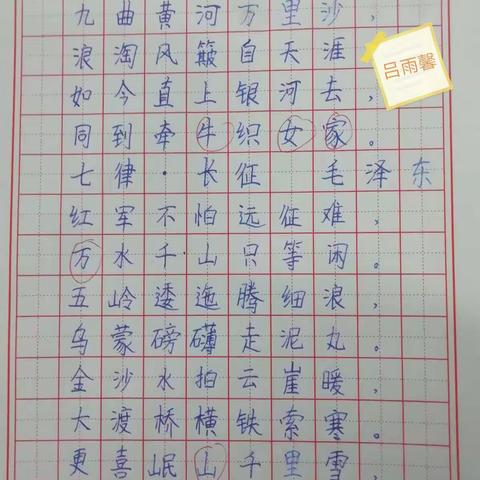 九曲黄河万里沙，
浪淘风簸自天涯
吕雨馨
如今直上银河去，
同到牵牛织女家。
七律·长征 毛泽东
红军不怕远征难，
万水千山只等闲。
五岭逶迤腾细浪，
乌蒙磅礴走泥丸。
金沙水拍云崖暖，
大渡桥横铁索寒。
更喜岷山千里雪，